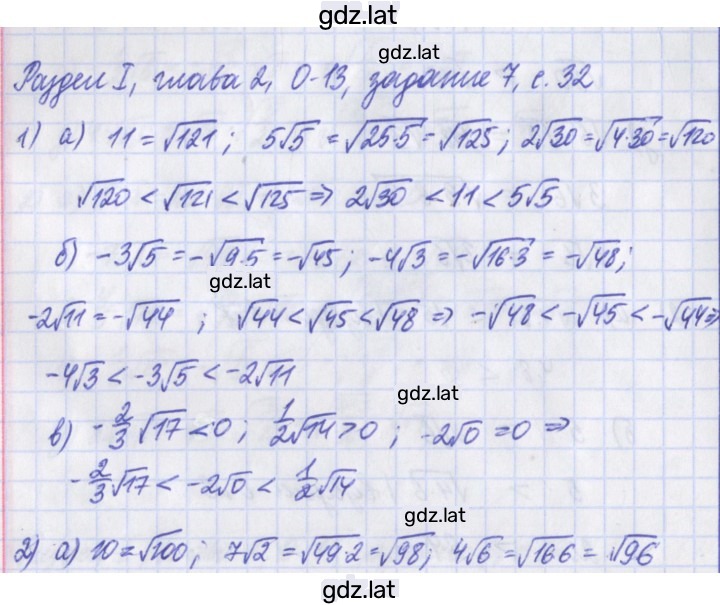 gdz.lat
gdz.lat
Раздел I, глава 2, О-13, задание 7, с. 32
1) а) 11 = √121 ; 5√5 = √25·5 = √125 ; 2√30 = √4·30 = √120
√120 < √121 < √125 ⇒ 2√30 < 11 < 5√5
б) -3√5 = -√9·5 = -√45 ; -4√3 = -√16·3 = -√48 ;
gdz.lat
-2√11 = -√44 ; √44 < √45 < √48 ⇒ -√48 < -√45 < -√44 ⇒
-4√3 < -3√5 < -2√11
gdz.lat
в) -2/3√17 < 0 ; 1/2√14 > 0 ; -2√0 = 0 ⇒
-2/3√17 < -2√0 < 1/2√14
gdz.lat
2) а) 10 = √100 ; 7√2 = √49·2 = √98 ; 4√6 = √16·6 = √96
gdz.lat